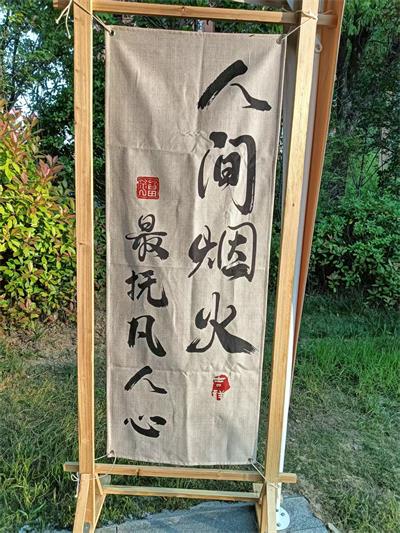 人间烟火
最抚凡人心